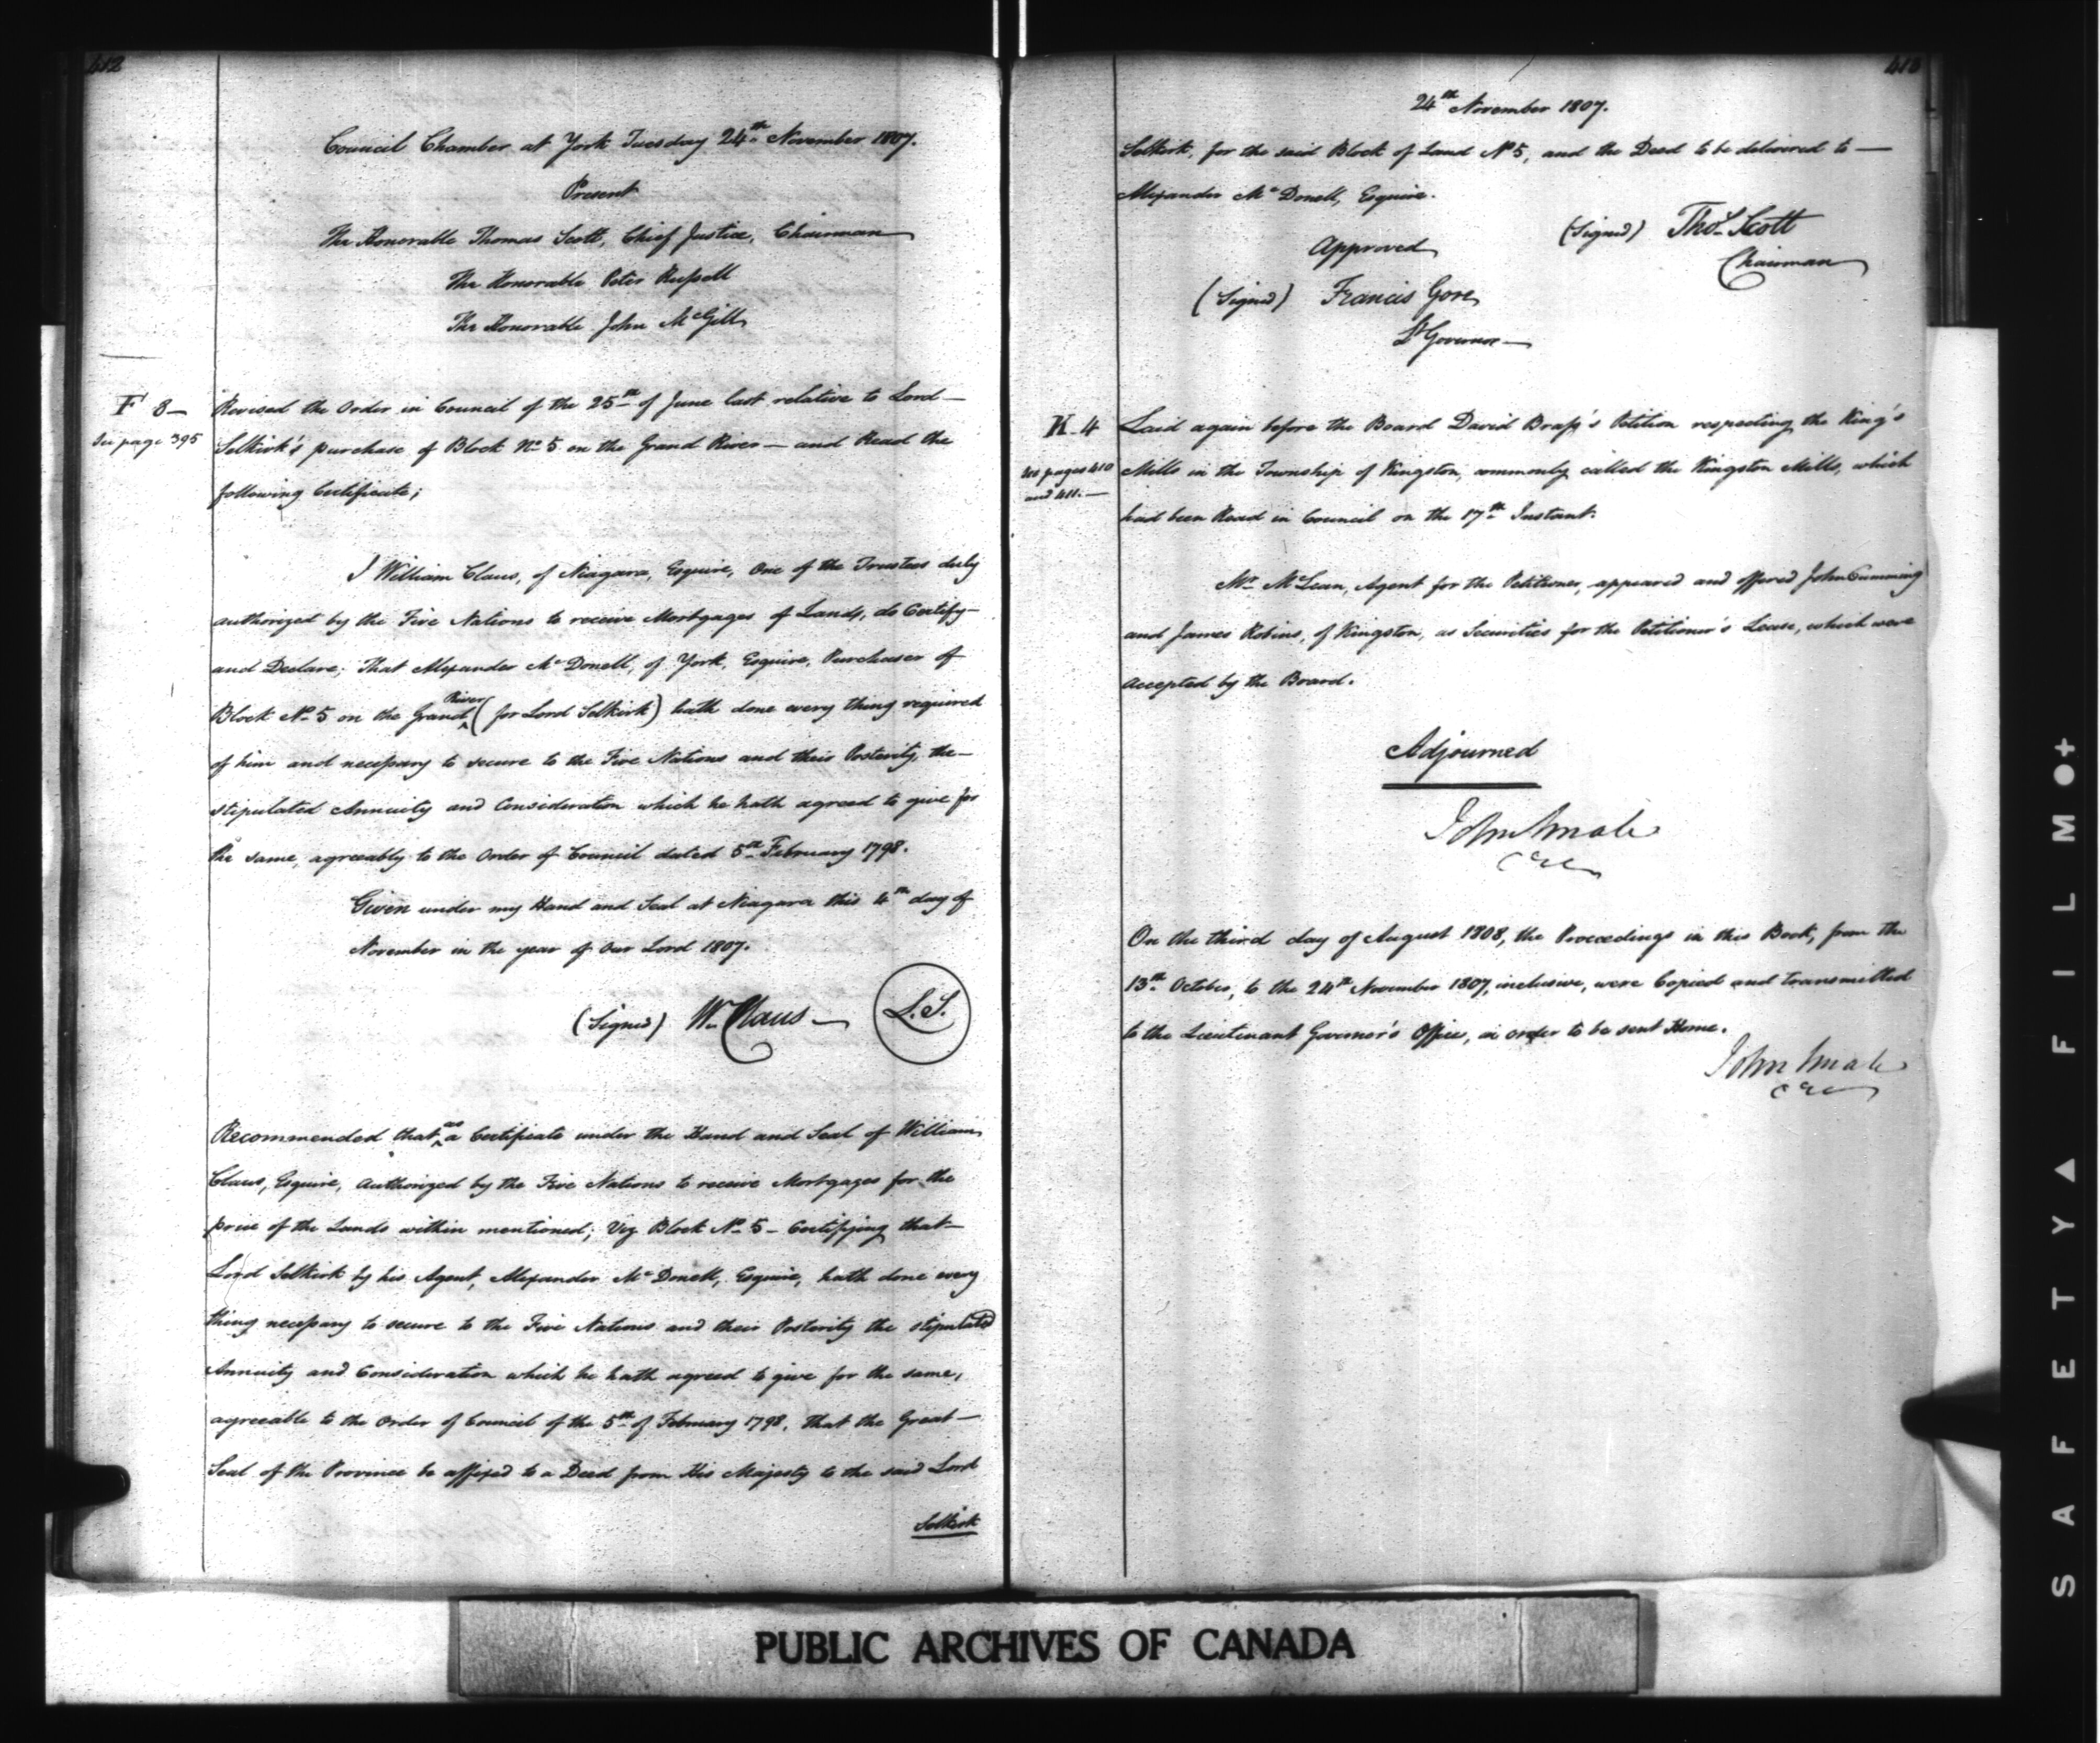 412
Council Chamber at York Tuesday 24th November 1807.
Present
The Honorable Thomas Scott, Chief Justice, Chairman
The Honorable Peter Russell
The Honorable John McGill
F 8—
See page 395
Revised the Order in Council of the 25th of June last relative to Lord—
Selkirk's purchase of Block No 5 on the Grand River — and Read the
following Certificate;
I William Claus, of Niagara, Esquire, One of the Trustees duly
authorized by the Five Nations to receive Mortgages of Lands, do Certify—
and Declare; That Alexander McDonell, of York, Esquire, Purchaser of
Block No 5 on the Grand River (for Lord Selkirk) hath done every thing required
of him and necessary to secure to the Five Nations and their Posterity, the—
stipulated Annuity and Consideration which he hath agreed to give for
the same, agreeably to the Order of Council dated 5th February 1798.
Given under my Hand and Seal at Niagara this 4th day of
November in the year of Our Lord 1807.
(Signed) Wm Claus — L.S.
Recommended that as a Certificate under the Hand and Seal of William
Claus, Esquire, authorized by the Five Nations to receive Mortgages for the
price of the Lands within mentioned; Viz Block No 5 — Certifying that—
Lord Selkirk by his Agent, Alexander McDonell, Esquire, hath done every
thing necessary to secure to the Five Nations and their Posterity the stipulated
Annuity and Consideration which he hath agreed to give for the same,
agreeable to the Order of Council of the 5th of February 1798, that the Great—
Seal of the Province be affixed to a Deed from His Majesty to the said Lord
Selkirk
413
24th November 1807.
Selkirk, for the said Block of Land No 5, and the Deed to be delivered to —
Alexander McDonell, Esquire.
(Signed) Thos Scott
Chairman
Approved
(Signed) Francis Gore
Lt Governor —
K. 4
See pages 410
and 411. —
Laid again before the Board David Brass's Petition respecting the King's
Mills in the Township of Kingston, commonly called the Kingston Mills, which
had been Read in Council on the 17th Instant.
Mr McLean, Agent for the Petitioner, appeared and offered John Cumming
and James Robins, of Kingston, as Securities for the Petitioner's Lease, which were
accepted by the Board.
Adjourned
John Small
CEC
On the third day of August 1808, the Proceedings in this Book, from the
13th October, to the 24th November 1807, inclusive, were Copied and transmitted
to the Lieutenant Governor's Office, in order to be sent Home.
John Small
CEC
PUBLIC ARCHIVES OF CANADA
SAFETY FILM